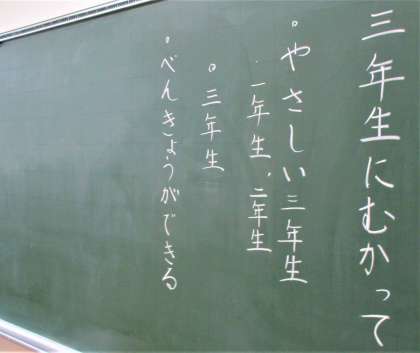 三年生にむかって
。やさしい三年生
・一年生・二年生
。三年生
。べんきょうができる